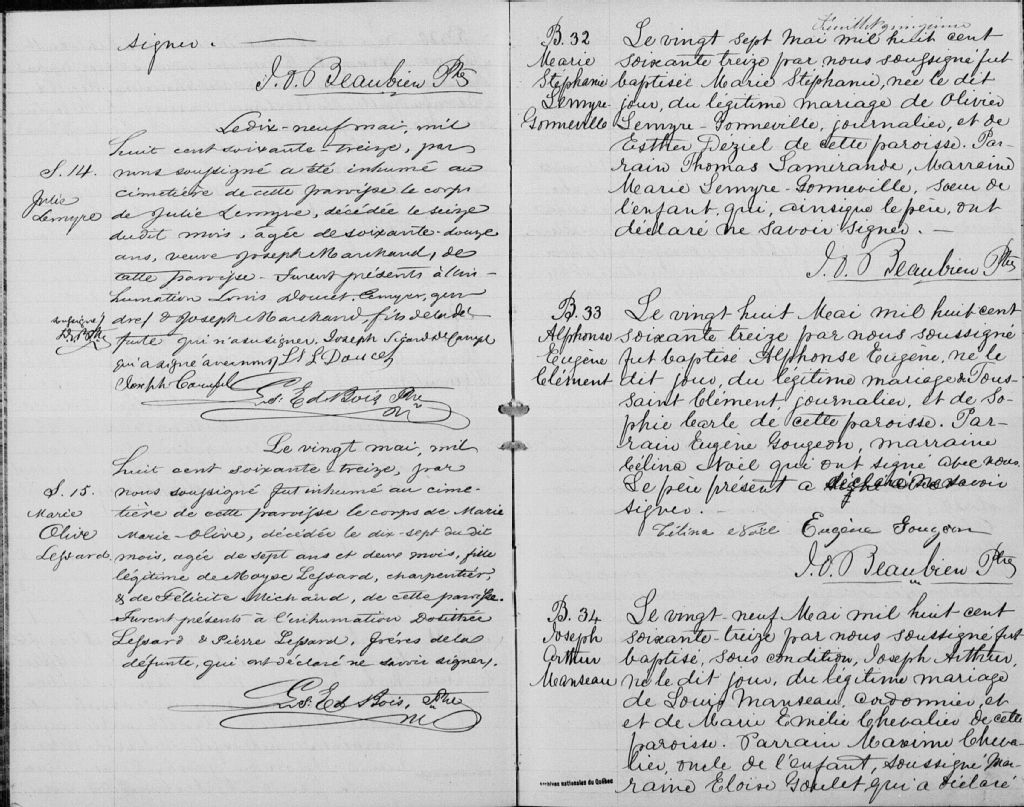 signer.
J. O. Beaubien Ptre
S. 14.
Julie
Lemyre
Le dix-neuf mai, mil
huit cent soixante-treize, par
nous soussigné a été inhumé au
cimetière de cette paroisse le corps
de Julie Lemyre, décédée le seize
du dit mois, agée de soixante-douze
ans, veuve Joseph Marchand, de
cette paroisse. Furent présents à l'in-
humation Louis Doucet, Lemyre, gen
dre, & Joseph Marchand, fils de la dé-
funte qui n'a su signer, Joseph Sicard de Carufel
qui a signé avec nous L. Doucet
Joseph Carufel
Ls. Ed. Bois Ptre
S. 15.
Marie
Olive
Lessard.
Le vingt mai, mil
huit cent soixante-treize, par
nous soussigné fut inhumé au cime-
tière de cette paroisse le corps de Marie
Marie-Olive, décédée le dix-sept du dit
mois, agée de sept ans et deux mois, fille
légitime de Moyse Lessard, charpentier,
& de Félicité Michaud, de cette paroisse.
Furent présents à l'inhumation Dosithée
Lessard & Pierre Lessard, frères de la
défunte, qui ont déclaré ne savoir signer.
Ls. Ed. Bois, Ptre
Feuillet quinzième
B. 32
Marie
Stéphanie
Lemyre
Gonneville
Le vingt sept Mai mil huit cent
soixante treize par nous soussigné fut
baptisée Marie Stéphanie, née le dit
jour, du légitime mariage de Olivier
Lemyre-Gonneville, journalier, et de
Esther Déziel de cette paroisse. Par-
rain Thomas Lamirande, Marraine
Marie Lemyre-Gonneville, soeur de
l'enfant, qui, ainsi que le père, ont
déclaré ne savoir signer. —
J. O. Beaubien Ptre
B. 33
Alphonse
Eugène
Clément
Le vingt huit Mai mil huit cent
soixante treize par nous soussigné
fut baptisé Alphonse Eugène, né le
dit jour, du légitime mariage de Tous-
saint Clément, journalier, et de So-
phie Carle de cette paroisse. Par-
rain Eugène Gougeon, marraine
Célina Noël qui ont signé avec nous.
Le père présent a déclaré ne savoir
signer. —
Célina Noël Eugène Gougeon
J. O. Beaubien Ptre
B. 34
Joseph
Arthur
Manseau
Le vingt-neuf Mai mil huit cent
soixante-treize par nous soussigné fut
baptisé, sous condition, Joseph Arthur,
né le dit jour, du légitime mariage
de Louis Manseau, cordonnier, et
et de Marie Emélie Chevalier de cette
paroisse. Parrain Maxime Cheva-
lier, oncle de l'enfant, soussigné Mar-
raine Eloïse Goulet, qui a déclaré
archives nationales du Québec